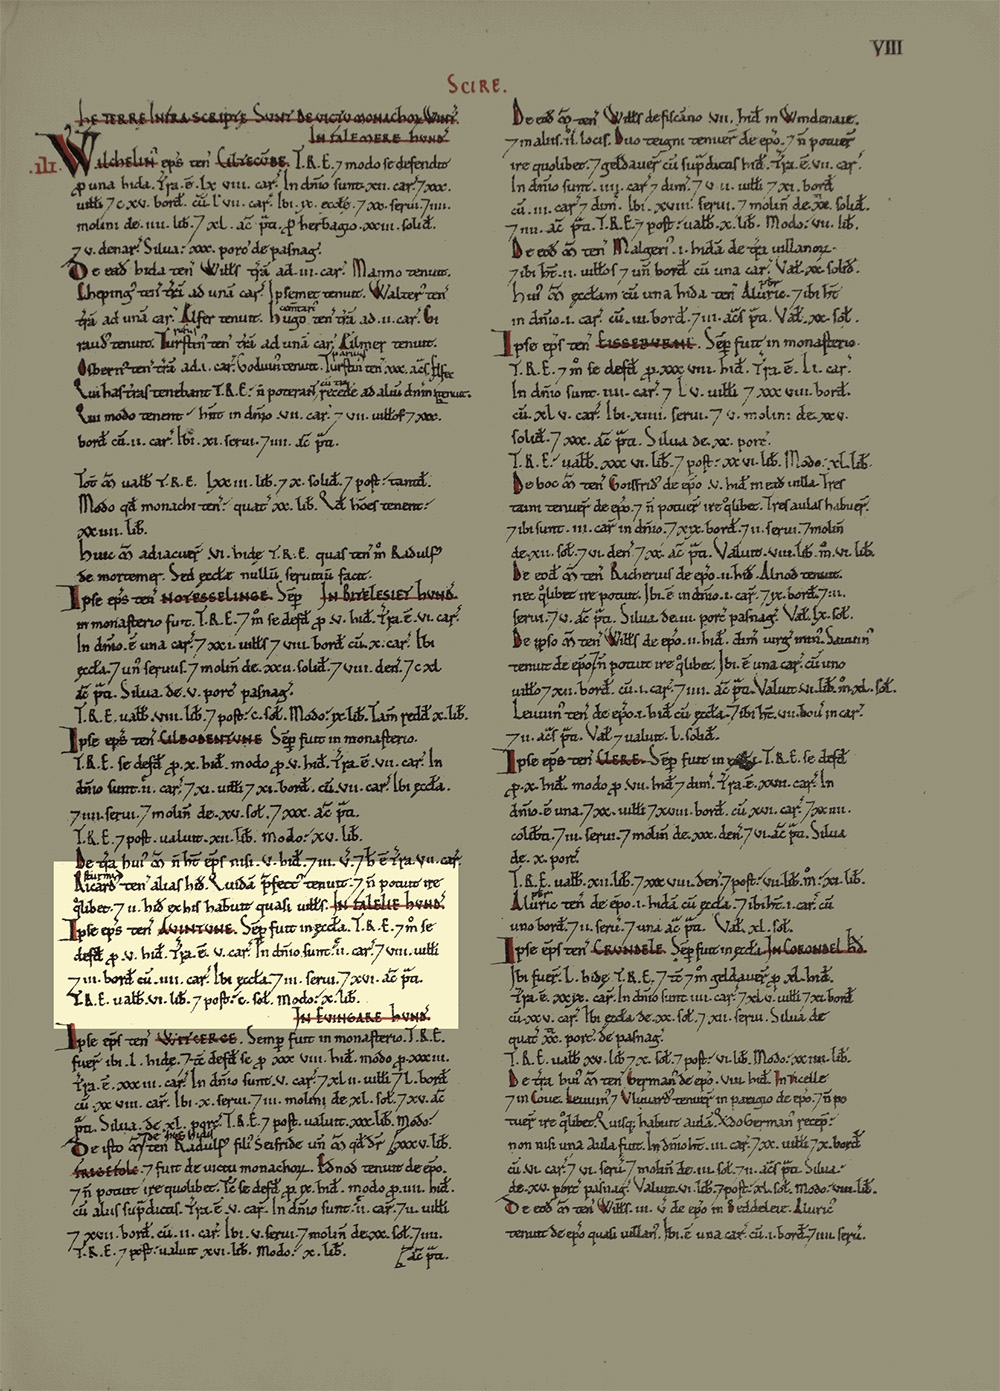 VIII
SCIRE.
HE TERRE INFRA SCRIPTE SUNT DE VICTU MONACHOR WINT.
IN FALEMERE HUND
.III. WALCHELIN' ep̄s ten' CILTECŪBE. T.R.E. ⁊ modo se defendit
ꝑ una hida. Tr̄a.ē. lx viii. car'. In dn̄io sunt.xii. car'.⁊ xxx.
uiłłi ⁊ c.xv. bord. cū l'vii. car'. Ibi.ix. ecclę.⁊ xx. serui.⁊ iiii.
molini de.iiii. lib.⁊ xl. ac̄ p̄ti. ꝓ herbagio.xxiii. solid.
⁊ v. denar'. Silua: xxx. porc' de pasnag'.
De ead hida ten' Wilts tr̄a ad.iii. car'. Manno tenuit.
Cheping' ten' tr̄a ad unā car'. Ipsemet tenuit. Walter' ten'
tr̄a ad unā car'. Alfer tenuit. Hugo cemtari' ten' tr̄a ad.ii. car'. Gi
raud' tenuit. Turstin' rufus ten' tr̄a ad unā car'. Ailmer tenuit.
Osbern' ten' tr̄a ad.i. car'. Goduin' tenuit. Turstin' paruus ten'.xxx. ac̄s. Elfec
Qui has tr̄as tenebant T.R.E. ñ poterant cū tra recede ad aliū dn̄m tenuit.
Qui modo tenent: hn̄t in dn̄io.vii. car'.⁊ vii. uiłłos ⁊ xxx.
bord cū.ii. car'. Ibi.xi. serui.⁊ iiii. ac̄ p̄ti.
Tot' m̄ ualb T.R.E. lxxiii. lib.⁊ x. solid.⁊ post: tantd.
Modo qd monachi ten': quat' xx. lib. Qd hōes tenent:
xxiiii. lib.
Huic m̄ adiacuer'. vi. hidę T.R.E. quas ten' m̊ Radulf
de mortemer. Sed ecclæ nullū seruitiū facit.
Ipse ep̄s ten' NOTESSELINGE. Sēp IN BITELESIET HUND.
in monasterio fuit. T.R.E.⁊ m̊ se defd ꝓ v. hid. Tr̄a.ē vi. car'.
In dn̄io.ē una car'.⁊ xxi. uiłłs ⁊ viii. bord cū.x. car'. Ibi
eccła.⁊ un' seruus.⁊ molin' de.xxii. solid.⁊ viii. den'.⁊ c xl
ac̄ p̄ti. Silua de.v. porc' pasnag'.
T.R.E. ualb.viii. lib.⁊ post: c. sol. Modo: ix. lib. Tam' redd x. lib.
Ipse ep̄s ten' CILBODENTUNE. Sēp fuit in monasterio.
T.R.E. se defd ꝓ.x. hid. modo ꝓ v. hid. Tr̄a.ē vii. car'. In
dn̄io sunt.ii. car'.⁊ xi. uiłłi ⁊ xi. bord. cū.vii. car'. Ibi eccła.
⁊ iiii. serui.⁊ molin' de.xv. sol.⁊ xxx. ac̄ p̄ti.
T.R.E.⁊ post: ualuit.xii. lib. Modo: xv. lib.
De tr̄a hui' m̄ ñ ht ep̄s nisi. v. hid.⁊ iii. v̄.⁊ ħ ē tr̄a vii. car'.
Ricard sturmid ten' alias hid. Quidā p̄fect' tenuit.⁊ ñ potuit ire
q̊libet.⁊ ii. hid ex his habuit quasi uiłłs. IN FALELIE HUND.
Ipse ep̄s ten' AVINTUNE. Sēp fuit in eccła. T.R.E.⁊ m̊ se
defd ꝓ v. hid. Tr̄a.ē. v. car'. In dn̄io sunt.ii. car'.⁊ viii. uiłłi
⁊ iii. bord cū.iii. car'. Ibi eccła.⁊ iii. serui.⁊ xvi. ac̄ p̄ti.
T.R.E. ualb.vi. lib.⁊ post: c. sol. Modo: x. lib.
IN EVINGARE HUND.
Ipse ep̄s ten' WITCERCE. Semp fuit in monasterio. T.R.E.
fuer' ibi.l. hidę.⁊ tc̄ defd se ꝓ xxx viii. hid. modo ꝓ.xxxiii.
Tr̄a.ē. xxxiii. car'. In dn̄io sunt.v. car'.⁊ xl ii. uiłłi ⁊ l. bord
cū.xx viii. car'. Ibi.x. serui.⁊ iii. molini de.xl. sol.⁊ xv. ac̄
p̄ti. Silua. de.xl. porc'. T.R.E.⁊ post ualuit.xxx. lib. Modo:
De isto m̄ ten' Radulf' fili' Seifride un' m̄ qd dr̄ xxxv. lib.
FRIGEFOLC.⁊ fuit de uictu monachor. Ednod tenuit de ep̄o.
⁊ ñ potuit ire quolibet. Tc̄ se defd ꝓ ix. hid. modo ꝓ.iiii. hid.
cū aliis sup̄dictis. Tr̄a.ē v. car'. In dn̄io sunt.ii. car'.⁊ ii. uiłłi
⁊ xvii. bord. cū.ii. car'. Ibi. v. serui.⁊ molin' de.xx. sol.⁊ iiii.
T.R.E.⁊ post: ualuit xvi. lib. Modo: x. lib. ac̄ p̄ti.
De eod m̄ ten' Wilts de fiscāno vii. hid in Windenaie.
⁊ in aliis.ii. locis. Duo teigni tenuer' de ep̄o.⁊ ñ potuer'
ire quolibet.⁊ geldauer' cū sup̄dictis hid'. Tr̄a.ē. vii. car'.
In dn̄io sunt. iiii. car'.⁊ dim'.⁊ v ii. uiłłi ⁊ xi. bord
cū.iii. car'.⁊ dim'. Ibi.xviii. serui.⁊ molin' de.xx. solid.
⁊ iiii. ac̄ p̄ti. T.R.E.⁊ post: ualb.x. lib. Modo: vii. lib.
De eod m̄ ten' Malger'. i. hidā de tr̄a uillanor.
⁊ ibi ht.ii. uiłłos ⁊ un' bord cū una car'. Val.xx. solid.
Hui' m̄ ecclam cū una hida ten' Aluric pbr.⁊ ibi ht
in dn̄io.i. car'. cū.iii. bord.⁊ iii. ac̄s p̄ti. Val.xx. sol.
Ipse ep̄s ten' EISSEBURNE. Sēp fuit in monasterio.
T.R.E.⁊ m̊ se defd ꝓ.xxxviii. hid. Tr̄a.ē. li. car'.
In dn̄io sunt.iiii. car'.⁊ lv. uiłłi ⁊ xxx viii. bord.
cū.xl v. car'. Ibi.xiiii. serui.⁊ v. molini de.xx v.
solid.⁊ xxx. ac̄ p̄ti. Silua de.xx. porc'.
T.R.E. ualb. xxx vi. lib.⁊ post: xxvi. lib. Modo: xl. lib.
De hoc m̄ ten' Goisfrid' de ep̄o v. hid in ead uilla. Tres
taini tenuer' de ep̄o.⁊ ñ potuer' ire q̊libet. Tres aulas habuer'.
⁊ ibi sunt.iii. car' in dn̄io.⁊ xix. bord.⁊ ii. serui.⁊ molin'
de.xii. sol.⁊ vi. den'.⁊ xx. ac̄ p̄ti. Valuit.viii. lib. m̊.vi. lib.
De eod m̄ ten' Richerius de ep̄o.ii. hid. Alnod tenuit.
nec q̊libet ire potuit. Ibi.ē in dn̄io.i. car'.⁊ ix. bord.⁊ ii.
serui.⁊ v. ac̄ p̄ti. Silua de.iii. porc' pasnag'. Val. lx. sol.
De ipso m̄ ten' Wilts de ep̄o.ii. hid. dim' uirg' min'.
tenuit de ep̄o.⁊ ñ potuit ire q̊libet. Ibi.ē una car'. cū uno
uiłło ⁊ xii. bord. cū.i. car'.⁊ iiii. ac̄ p̄ti. Valuit vi. lib. m̊.xl. sol.
Leuuin' ten' de ep̄o.i. hid cū eccła.⁊ ibi ht.
⁊ ii. ac̄s p̄ti. Val ⁊ ualuit. l. solid.
Ipse ep̄s ten' CLERE. Sēp fuit in T.R.E. se defd
ꝓ.x. hid. modo ꝓ vii. hid ⁊ dim'. Tr̄a.ē. xvii. car'. In
dn̄io.ē una.⁊ xx. uiłłi ⁊ xviii. bord. cū xvi. car'.⁊ xx iiii.
coliбti.⁊ iii. serui.⁊ molin' de.xxx. den'.⁊ vi. ac̄ p̄ti. Silua
de.x. porc'.
T.R.E. ualb.xii. lib.⁊ viii. den'.⁊ post: vii. lib. m̊: xi. lib.
Aluric pbr ten' de ep̄o.i. hidā cū eccła.⁊ ibi ht.i. car' cū
uno bord.⁊ ii. seru'.⁊ una ac̄ p̄ti. Val.xl. sol.
Ipse ep̄s ten' CRUNDELE. Sēp fuit in eccła. IN CORONDEL HD.
Ibi fuer'. L. hidę. T.R.E.⁊ tc̄ ⁊ m̊ geldauer' ꝓ xl. hid.
Tr̄a.ē. xxix. car'. In dn̄io sunt.iiii. car'.⁊ xl. uiłłi ⁊ xi. bord
cū.xxv. car'. Ibi eccła de.xx. sol.⁊ xii. serui. Silua de
quat' xx. porc' de pasnag'.
T.R.E. ualb.xv. lib.⁊ x. sol.⁊ post: vi. lib. Modo: xx. lib.
De tr̄a hui' m̄ ten' German' de ep̄o. viii. hid. In Ticelle
⁊ in Coue. Leuuin' ⁊ Vluuard tenuer' in paragio de ep̄o.⁊ ñ po
tuer' ire q̊libet. Quisq; habuit aulā. Qdo German' recep̄:
non nisi una aula fuit. In dn̄io ht.iii. car'.⁊ xx. uiłłi.⁊ x. bord
cū.vi. car'.⁊ vi. seru'.⁊ molin' de.iii. sol.⁊ ii. ac̄s p̄ti. Silua:
de.xv. porc' pasnag'. Valuit.vi. lib.⁊ post: xl. sol. Modo: viii. lib.
De eod m̄ ten' Wilts.iii. v̄ de ep̄o in Beddeleie. Aluric'
tenuit de ep̄o quasi uillan'. Ibi.ē una car' cū.i. bord.⁊ iiii. seru'.